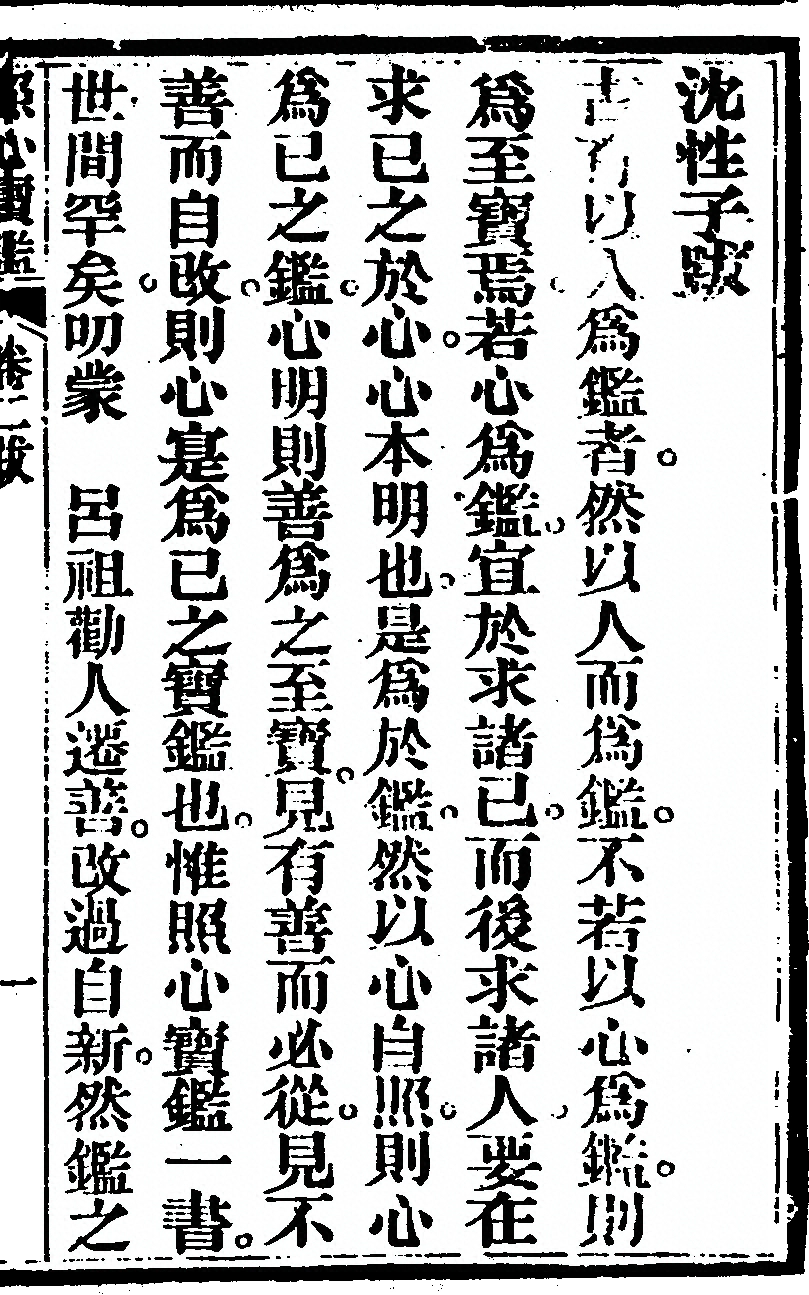 沈性子跋
古有以人為鑑者。然以人而為鑑。不若以心為鑑。則
為至寶焉。若心為鑑。宜於求諸已。而後求諸人。要在
求已之於心。心本明也。是為於鑑。然以心自照。則心
為已之鑑。心明則善為之至寶。見有善而必從。見不
善而自改。則心寔為已之寶鑑也。惟照心寶鑑一書。
世間罕矣。叨蒙　呂祖勸人遷善。改過自新。然鑑之
照心寶鑑　卷二跋　一